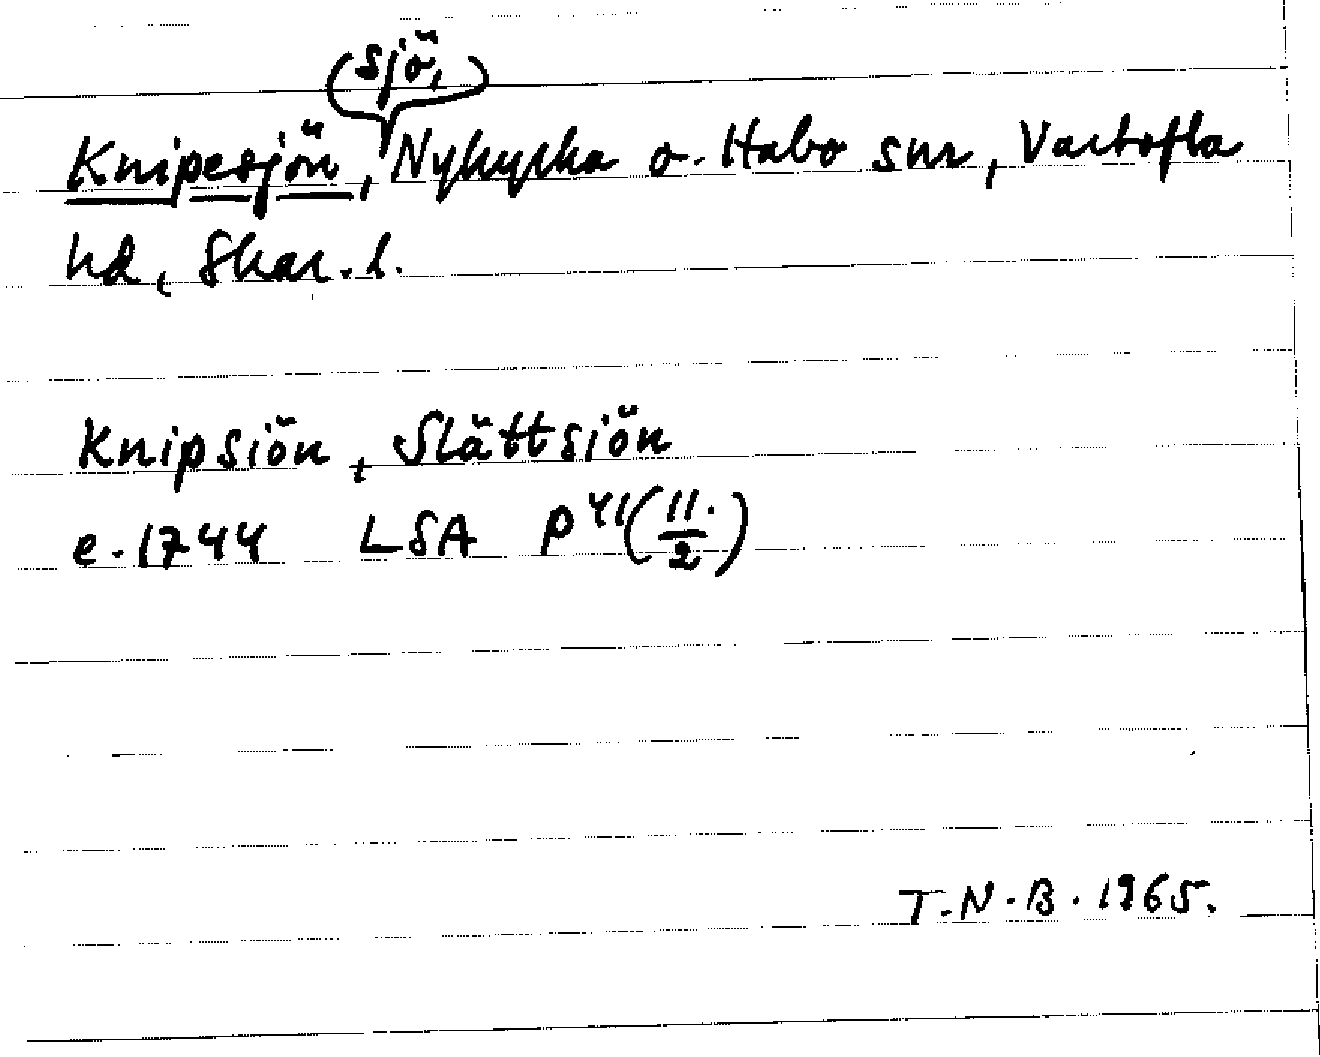 (sjö,)
Knipesjön, Nykyrka o. Habo snr, Vartofta
hd, Skar. l.
Knipsiön, Slättsiön
e. 1744 LSA P 41 (11./2)
T.N.B. 1965.